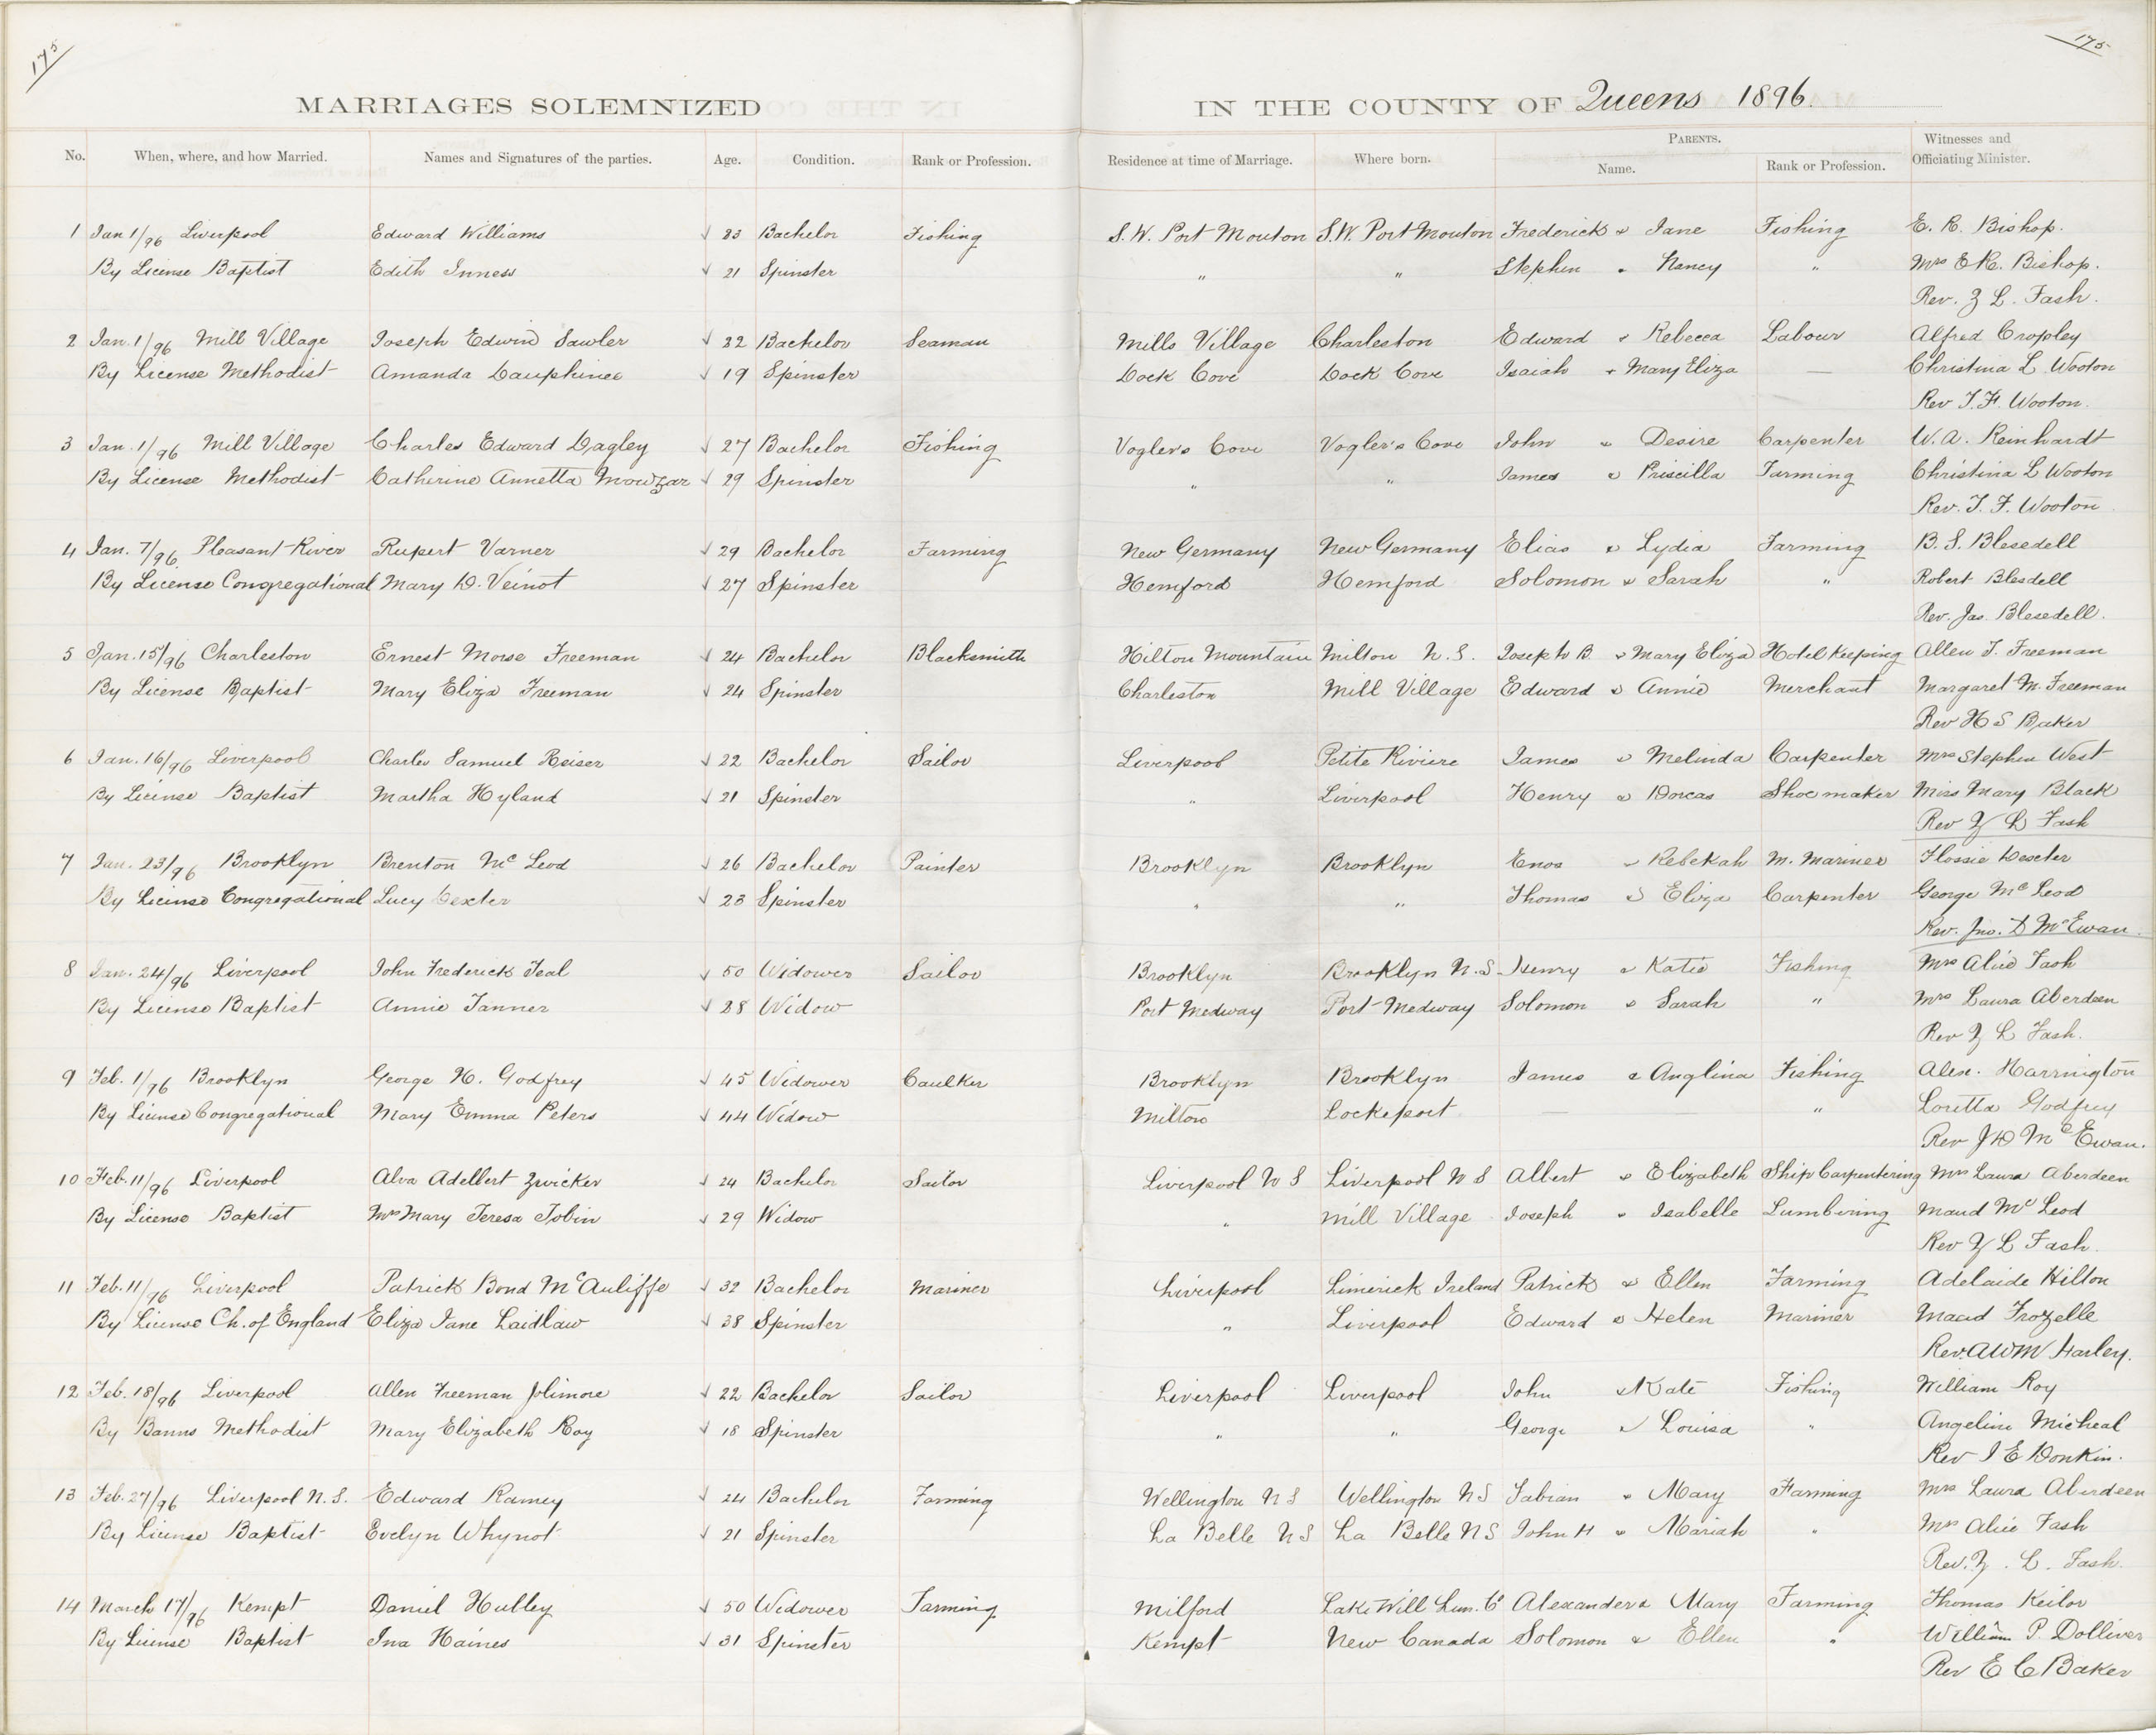 175
175
MARRIAGES SOLEMNIZED IN THE COUNTY OF Queens 1896.
No. When, where, and how Married. Names and Signatures of the parties. Age. Condition. Rank or Profession. Residence at time of Marriage. Where born. PARENTS. Name. Rank or Profession. Witnesses and Officiating Minister.
1 Jan 1/96 Liverpool Edward Williams √ 23 Bachelor Fishing S. W. Port Mouton S. W. Port Mouton Frederick & Jane Fishing E. R. Bishop.
By License Baptist Edith Inness √ 21 Spinster " " Stephen & Nancy " Mrs E R. Bishop.
Rev. Z L. Fash.
2 Jan. 1/96 Mill Village Joseph Edwin Sawler √ 22 Bachelor Seaman Mills Village Charleston Edward & Rebecca Labour Alfred Cropley
By License Methodist Amanda Dauphinee √ 19 Spinster Dock Cove Dock Cove Isaiah & Mary Eliza — Christina L Wooton
Rev T. F. Wooton.
3 Jan. 1/96 Mill Village Charles Edward Dagley √ 27 Bachelor Fishing Vogler's Cove Vogler's Cove John & Desire Carpenter W. A. Reinhardt
By License Methodist Catherine Annetta Mowzar √ 29 Spinster " " James & Priscilla Farming Christina L Wooton
Rev. T. F. Wooton
4 Jan. 7/96. Pleasant River Rupert Varner √ 29 Bachelor Farming New Germany New Germany Elias & Lydia Farming B. S. Blesedell
By License Congregational Mary D. Veinot √ 27 Spinster Hemford Hemford Solomon & Sarah " Robert Blesdell
Rev. Jas Blesedell.
5 Jan. 15/96 Charleston Ernest Morse Freeman √ 24 Bachelor Blacksmith Hilton Mountain Milton N. S. Joseph B. & Mary Eliza Hotel Keeping Allen T. Freeman
By License Baptist Mary Eliza Freeman √ 24 Spinster Charleston Mill Village Edward & Annie Merchant Margaret M. Freeman
Rev H S Baker
6 Jan. 16/96 Liverpool Charles Samuel Reiser √ 22 Bachelor Sailor Liverpool Petite Riviere James & Melinda Carpenter Mrs Stephen West
By License Baptist Martha Hyland √ 21 Spinster " Liverpool Henry & Dorcas Shoemaker Miss Mary Black
Rev Z L Fash
7 Jan. 23/96 Brooklyn Brenton Mc Leod √ 26 Bachelor Painter Brooklyn Brooklyn Enos & Rebekah M. Mariner Flossie Dexter
By License Congregational Lucy Dexter √ 23 Spinster " " Thomas & Eliza Carpenter George Mc Leod
Rev. Jno. D McEwan.
8 Jan. 24/96 Liverpool John Frederick Teal √ 50 Widower Sailor Brooklyn Brooklyn N. S. Henry & Katie Fishing Mrs Alice Fash
By License Baptist Annie Tanner √ 28 Widow Port Medway Port Medway Solomon & Sarah " Mrs Laura Aberdeen
Rev Z L Fash.
9 Feb. 1/96 Brooklyn George H. Godfrey √ 45 Widower Caulker Brooklyn Brooklyn James & Anglina Fishing Alex. Harrington
By License Congregational Mary Emma Peters √ 44 Widow Milton Lockeport — " Loretta Godfrey
Rev J D Mc Ewan.
10 Feb. 11/96 Liverpool Alva Adelbert Zwicker √ 24 Bachelor Sailor Liverpool N S Liverpool N S Albert & Elizabeth Ship Carpentering Mrs Laura Aberdeen
By License Baptist Mrs Mary Teresa Tobin √ 29 Widow " Mill Village Joseph & Isabelle Lumbering Maud Mc Leod
Rev Z L Fash.
11 Feb. 11/96 Liverpool Patrick Bond McAuliffe √ 32 Bachelor Mariner Liverpool Limerick Ireland Patrick & Ellen Farming Adelaide Hilton
By License Ch. of England Eliza Jane Laidlaw √ 38 Spinster " Liverpool Edward & Helen Mariner Maud Frozelle
Rev. A W M Harley.
12 Feb. 18/96 Liverpool Allen Freeman Jolimore √ 22 Bachelor Sailor Liverpool Liverpool John & Kate Fishing William Roy
By Banns Methodist Mary Elizabeth Roy √ 18 Spinster " " George & Louisa " Angelina Micheal
Rev I E Donkin.
13 Feb. 27/96 Liverpool N. S. Edward Ramey √ 24 Bachelor Farming Wellington N S Wellington N S Fabian & Mary Farming Mrs Laura Aberdeen
By License Baptist Evelyn Whynot √ 21 Spinster La Belle N S La Belle N S John H & Mariah " Mrs Alice Fash
Rev. Z. L. Fash.
14 March 17/96 Kempt Daniel Hubley √ 50 Widower Farming Milford Lake Will Lun. Co Alexander & Mary Farming Thomas Keilor
By License Baptist Ina Haines √ 31 Spinster Kempt New Canada Solomon & Ellen " William P. Dolliver
Rev E C Baker